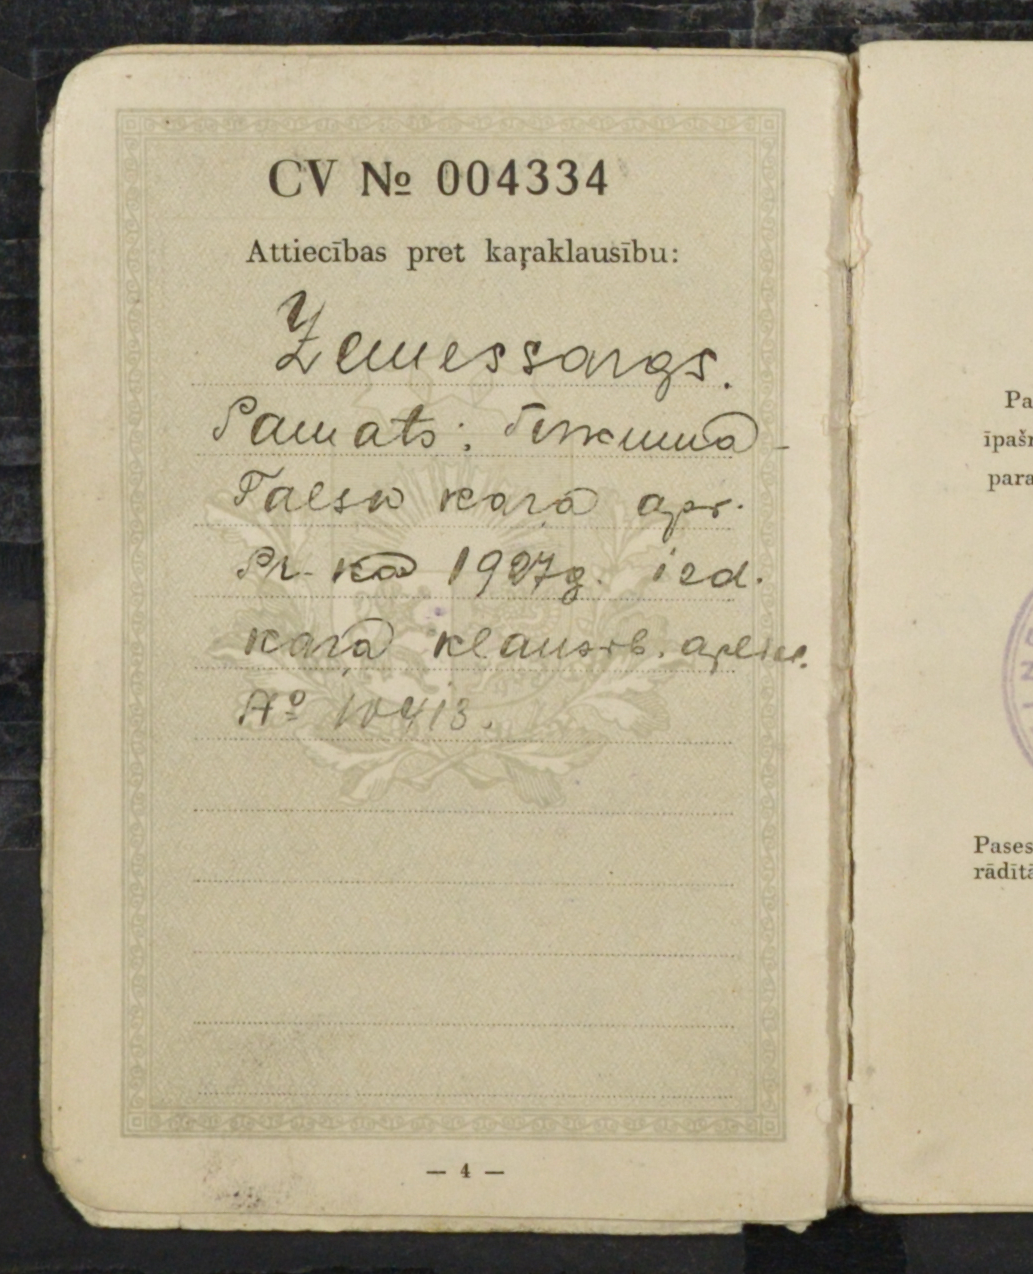 CV № 004334
Attiecības pret kaŗaklausību:
Zemessargs.
Pamats: Tukuma-
Talsu kaŗa apr.
Pr-ka 1927g. izd.
kaŗa klausīb. apliec.
№ 10413.
— 4 —
Pa
īpašn
para
Pases
rādītā